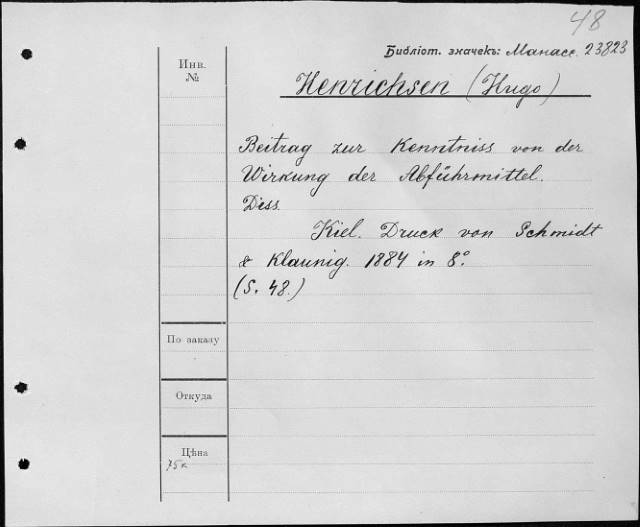 48
Библіот. значекъ: Манасс. 23823
Инв.
№
Henrichsen (Hugo)
Beitrag zur Kenntniss von der
Wirkung der Abführmittel.
Diss.
Kiel. Druck von Schmidt
& Klaunig. 1884 in 8°.
(S. 48.)
По заказу
Откуда
Цѣна
75к